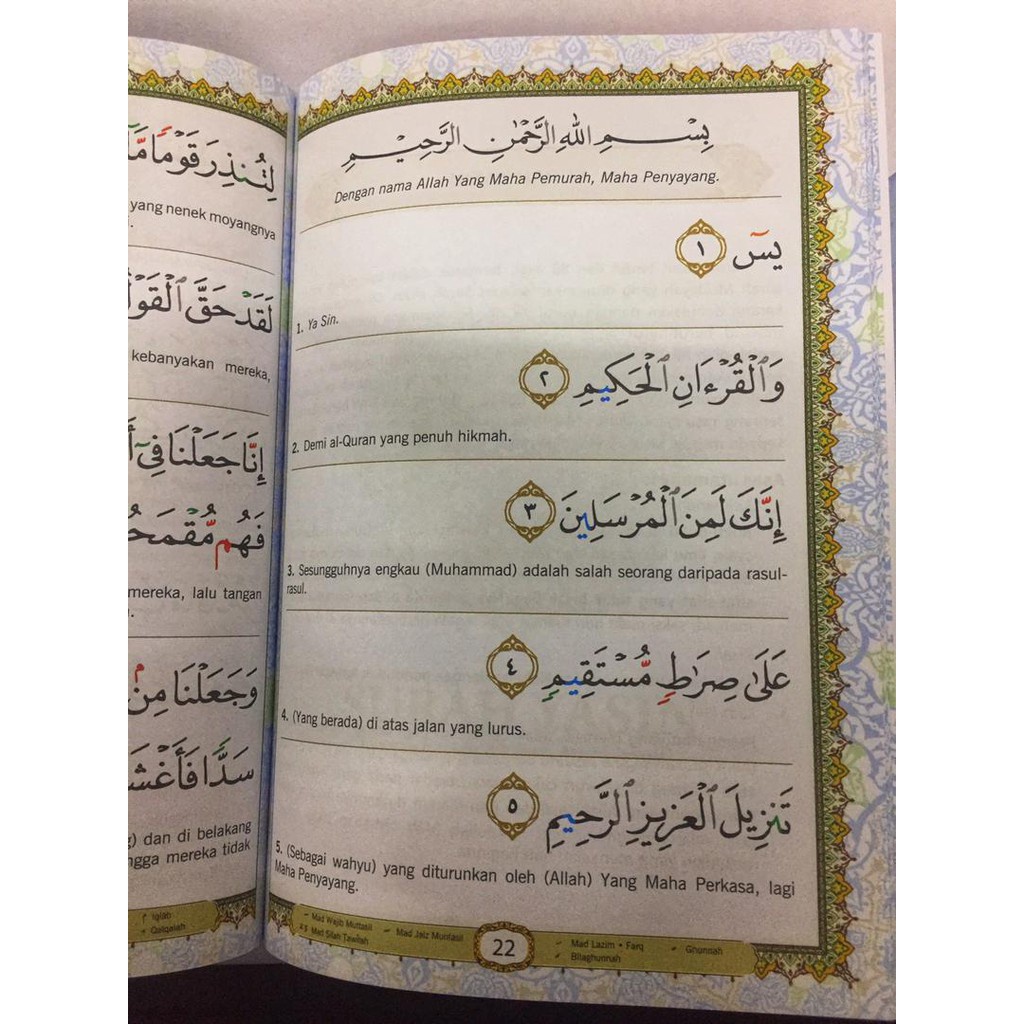 بِسْمِ اللهِ الرَّحْمٰنِ الرَّحِيْمِ
Dengan nama Allah Yang Maha Pemurah, Maha Penyayang.
يسٓ ١
1. Ya Sin.
وَٱلْقُرْءَانِ ٱلْحَكِيمِ ٢
2. Demi al-Quran yang penuh hikmah.
إِنَّكَ لَمِنَ ٱلْمُرْسَلِينَ ٣
3. Sesungguhnya engkau (Muhammad) adalah salah seorang daripada rasul-
rasul.
عَلَىٰ صِرَٰطٍ مُّسْتَقِيمٍ ٤
4. (Yang berada) di atas jalan yang lurus.
تَنزِيلَ ٱلْعَزِيزِ ٱلرَّحِيمِ ٥
5. (Sebagai wahyu) yang diturunkan oleh (Allah) Yang Maha Perkasa, lagi
Maha Penyayang.
Mad Wajib Muttasil
Mad Silah Tawilah
Mad Jaiz Munfasil
22
Mad Lazim • Farq
Bilaghunnah
Ghunnah
لِتُنذِرَ قَوْمًا مَّا
yang nenek moyangnya
لَقَدْ حَقَّ ٱلْقَوْلُ
kebanyakan mereka,
إِنَّا جَعَلْنَا فِىٓ
فَهُم مُّقْمَحُ
mereka, lalu tangan
وَجَعَلْنَا مِنۢ
سَدًّا فَأَغْشَ
) dan di belakang
ngga mereka tidak
Iqlab
Qalqalah